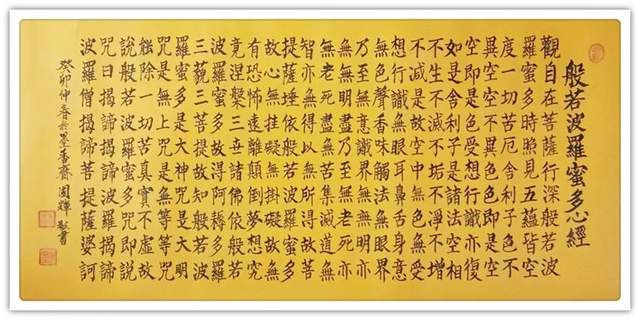 般若波羅蜜多心經
觀自在菩薩行深般若波
羅蜜多時照見五蘊皆空
度一切苦厄舍利子色不
異空空不異色色即是空
空即是色受想行識亦復
如是舍利子是諸法空相
不生不滅不垢不淨不增
不減是故空中無色無受
想行識無眼耳鼻舌身意
無色聲香味觸法無眼界
乃至無意識界無無明亦
無無明盡乃至無老死亦
無老死盡無苦集滅道無
智亦無得以無所得故菩
提薩埵依般若波羅蜜多
故心無掛礙無掛礙故無
有恐怖遠離顛倒夢想究
竟涅槃三世諸佛依般若
波羅蜜多故得阿耨多羅
三藐三菩提故知般若波
羅蜜多是大神咒是大明
咒是無上咒是無等等咒
能除一切苦真實不虛故
說般若波羅蜜多咒即說
咒曰揭諦揭諦波羅揭諦
波羅僧揭諦菩提薩婆訶
癸卯仲春於墨香齋周輝敬書